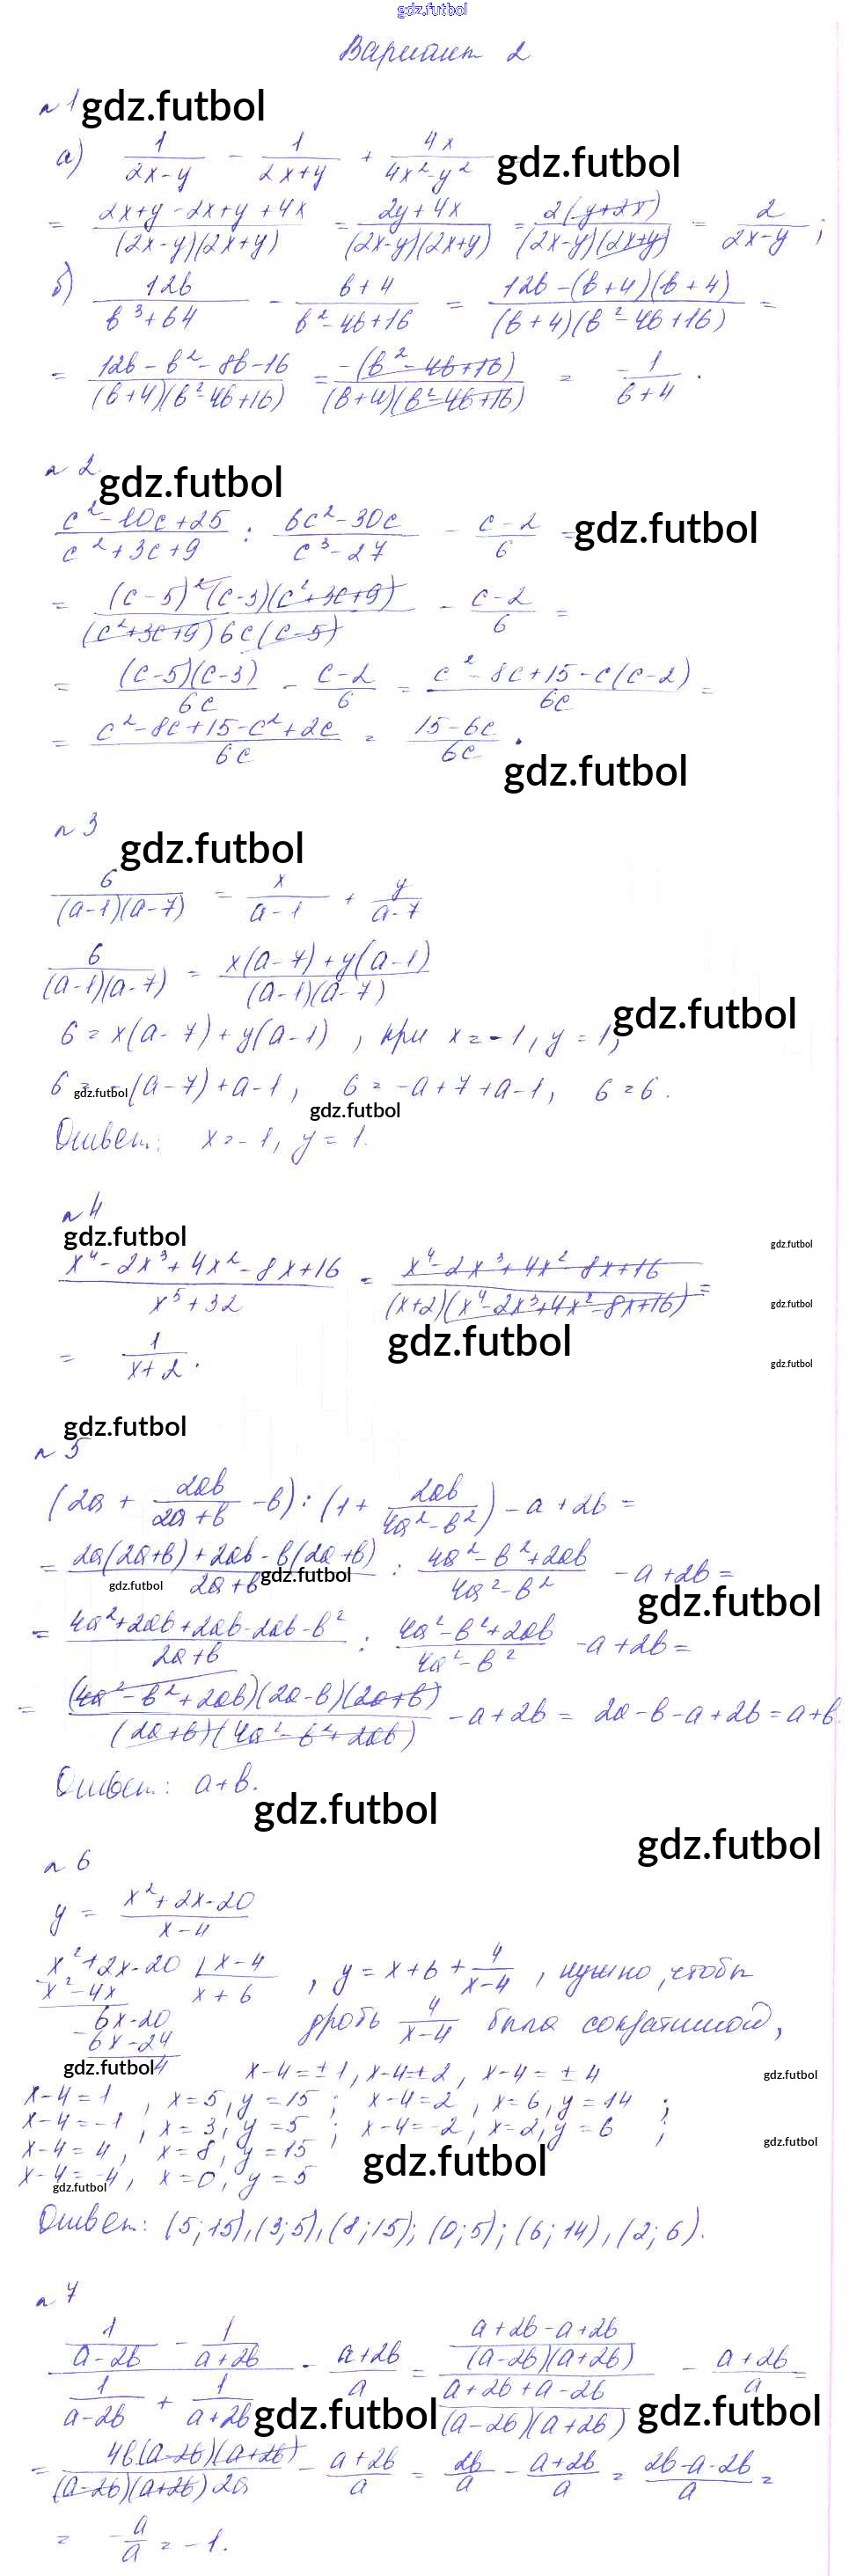 gdz.futbol
Вариант 2
n 1 gdz.futbol
а) 1/(2x-y) - 1/(2x+y) + 4x/(4x²-y²) gdz.futbol
= (2x+y-2x+y+4x)/((2x-y)(2x+y)) = (2y+4x)/((2x-y)(2x+y)) = 2(y+2x)/((2x-y)(2x+y)) = 2/(2x-y) ;
б) 12b/(b³+64) - (b+4)/(b²-4b+16) = (12b-(b+4)(b+4))/((b+4)(b²-4b+16)) =
= (12b-b²-8b-16)/((b+4)(b²-4b+16)) = -(b²-4b+16)/((b+4)(b²-4b+16)) = -1/(b+4) .
n 2 gdz.futbol
(c²-10c+25)/(c²+3c+9) : (6c²-30c)/(c³-27) - (c-2)/6 = gdz.futbol
= (c-5)²(c-3)(c²+3c+9)/((c²+3c+9)6c(c-5)) - (c-2)/6 =
= (c-5)(c-3)/6c - (c-2)/6 = (c²-8c+15-c(c-2))/6c =
= (c²-8c+15-c²+2c)/6c = (15-6c)/6c .
gdz.futbol
n 3
gdz.futbol
6/((a-1)(a-7)) = x/(a-1) + y/(a-7)
6/((a-1)(a-7)) = (x(a-7)+y(a-1))/((a-1)(a-7))
gdz.futbol
6 = x(a-7)+y(a-1) , при x=-1, y=1,
6 = -(a-7)+a-1, 6 = -a+7+a-1, 6=6.
gdz.futbol
gdz.futbol
Ответ: x=-1, y=1.
n 4
gdz.futbol
gdz.futbol
(x⁴-2x³+4x²-8x+16)/(x⁵+32) = (x⁴-2x³+4x²-8x+16)/((x+2)(x⁴-2x³+4x²-8x+16)) =
gdz.futbol
gdz.futbol
= 1/(x+2) .
gdz.futbol
gdz.futbol
n 5
(2a + 2ab/(2a+b) - b) : (1 + 2ab/(4a²-b²)) - a + 2b =
= (2a(2a+b)+2ab-b(2a+b))/(2a+b) : (4a²-b²+2ab)/(4a²-b²) - a+2b =
gdz.futbol
gdz.futbol
gdz.futbol
= (4a²+2ab+2ab-2ab-b²)/(2a+b) : (4a²-b²+2ab)/(4a²-b²) - a+2b =
= (4a²-b²+2ab)(2a-b)(2a+b)/((2a+b)(4a²-b²+2ab)) - a+2b = 2a-b-a+2b = a+b.
Ответ: a+b.
gdz.futbol
gdz.futbol
n 6
y = (x²+2x-20)/(x-4)
x²+2x-20 | x-4
x²-4x x+6 , y = x+6 + 4/(x-4) , нужно, чтобы
6x-20
6x-24 дробь 4/(x-4) была сократимой,
4
gdz.futbol
x-4=±1, x-4=±2, x-4=±4
gdz.futbol
x-4=1 , x=5, y=15 ; x-4=2 , x=6, y=14 ;
x-4=-1 , x=3, y=5 ; x-4=-2, x=2, y=6 ;
gdz.futbol
x-4=4, x=8, y=15
gdz.futbol
x-4=-4, x=0, y=5
gdz.futbol
Ответ: (5;15), (3;5), (8;15); (0;5); (6;14), (2;6).
n 7
(1/(a-2b) - 1/(a+2b))/(1/(a-2b) + 1/(a+2b)) - (a+2b)/a = ((a+2b-a+2b)/((a-2b)(a+2b)))/((a+2b+a-2b)/((a-2b)(a+2b))) - (a+2b)/a =
gdz.futbol
gdz.futbol
= 4b(a-2b)(a+2b)/((a-2b)(a+2b)2a) - (a+2b)/a = 2b/a - (a+2b)/a = (2b-a-2b)/a =
= -a/a = -1.